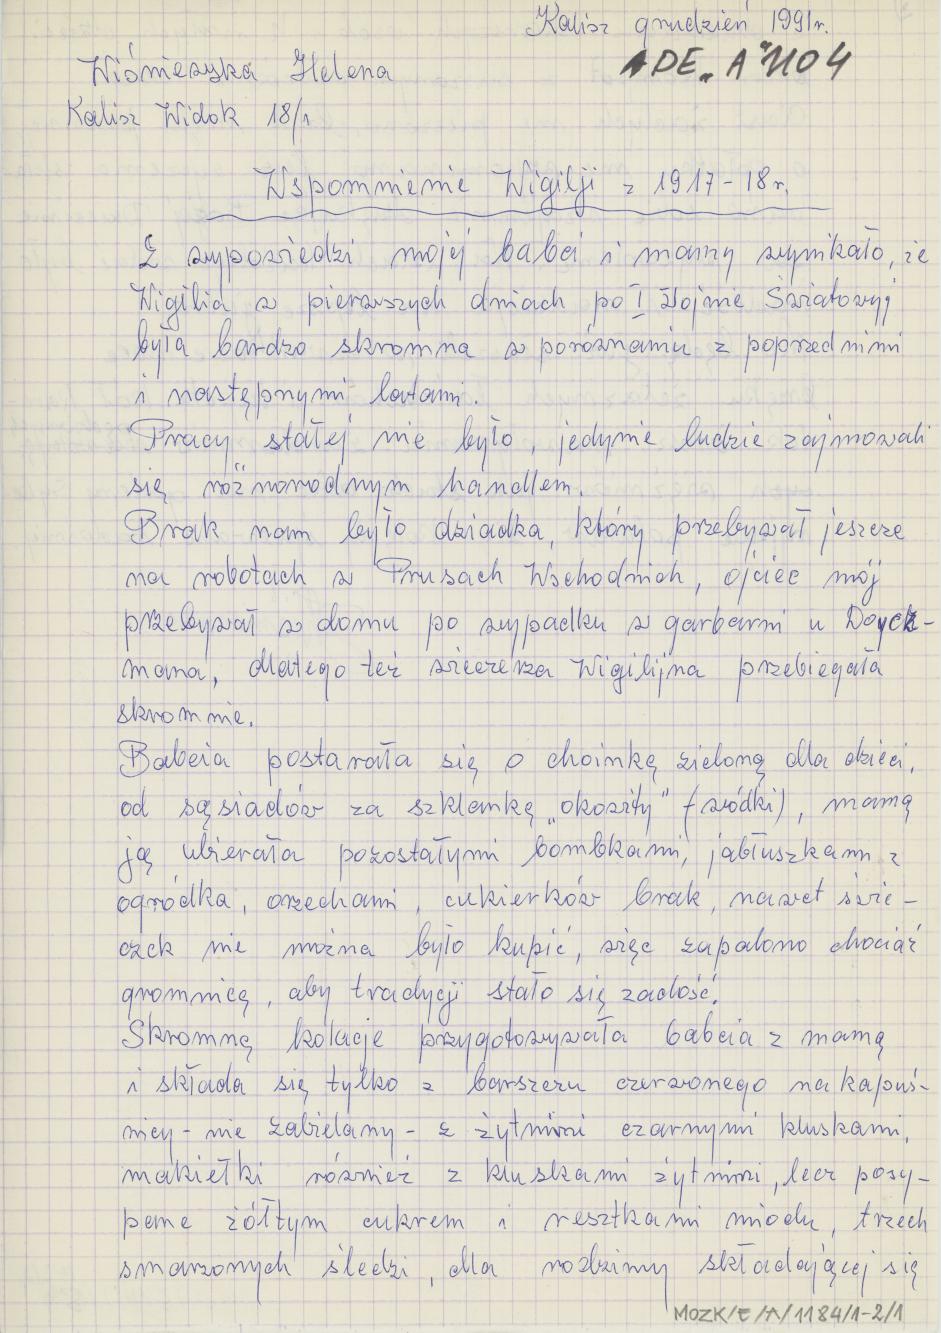 Kalisz grudzień 1991r.
ADE „A" 1104
Wiśniewska Helena
Kalisz Widok 18/1
Wspomnienie Wigilji z 1917-18r.
Z wypowiedzi mojej babci i mamy wynikało, że
Wigilia w pierwszych dniach po I Wojnie Światowyj
była bardzo skromna w porównaniu z poprzednimi
i następnymi latami.
Pracy stałej nie było, jedynie ludzie zajmowali
się różnorodnym handlem.
Brak nam było dziadka, który przebywał jeszcze
na robotach w Prusach Wschodnich, ojciec mój
przebywał w domu po wypadku w garbarni u Doyck-
mana, dlatego też wieczerza Wigilijna przebiegała
skromnie.
Babcia postarała się o choinkę zieloną dla dzieci,
od sąsiadów za szklankę „okowity" (wódki), mamą
ją ubierała pozostałymi bombkami, jabłuszkami z
ogródka, orzechami, cukierków brak, nawet świe-
czek nie można było kupić, więc zapalono chociaż
gromnicę, aby tradycji stało się zadość.
Skromną kolacje przygotowywała babcia z mamą
i składa się tylko z barszczu czerwonego na kapuś-
nicy - nie zabielany - z żytnimi czarnymi kluskami,
makiełki również z kluskami żytnimi, lecz posy-
pene żółtym cukrem i resztkami miodu, trzech
smarzonych śledzi, dla rodziny składającej się
MOZK/E/A/1184/1-2/1